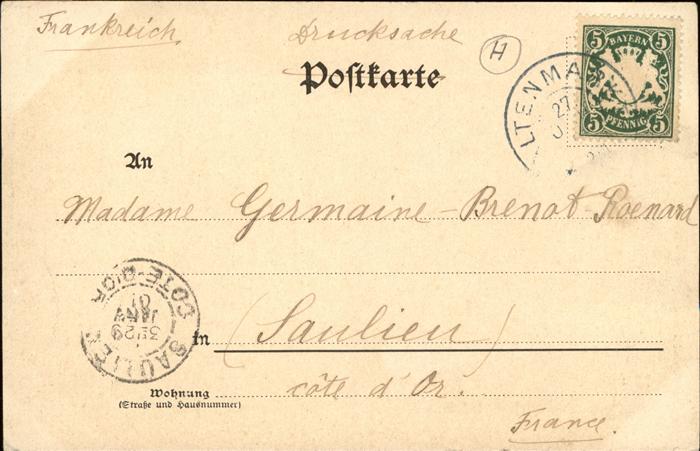 Frankreich Drucksache H
Postkarte
5 BAYERN 5
5 PFENNIG 5
LTENMA
27
An
Madame Germaine-Brenot-Roenard
SAULIEU COTE-D'OR
3E 29
JANV
01
in (Saulieu)
côte d'Or.
Wohnung
(Straße und Hausnummer)
France.